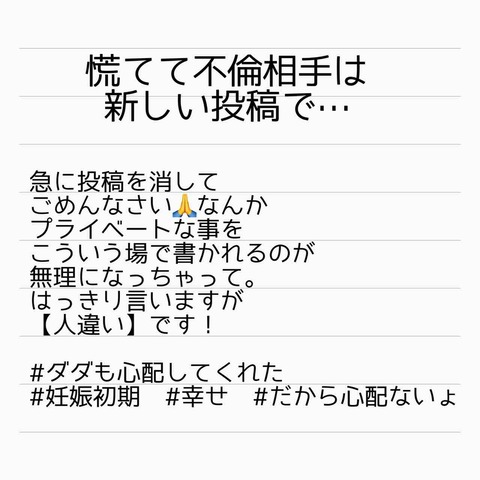 慌てて不倫相手は
新しい投稿で…
急に投稿を消して
ごめんなさい🙏なんか
プライベートな事を
こういう場で書かれるのが
無理になっちゃって。
はっきり言いますが
【人違い】です！
#ダダも心配してくれた
#妊娠初期　#幸せ　#だから心配ないょ